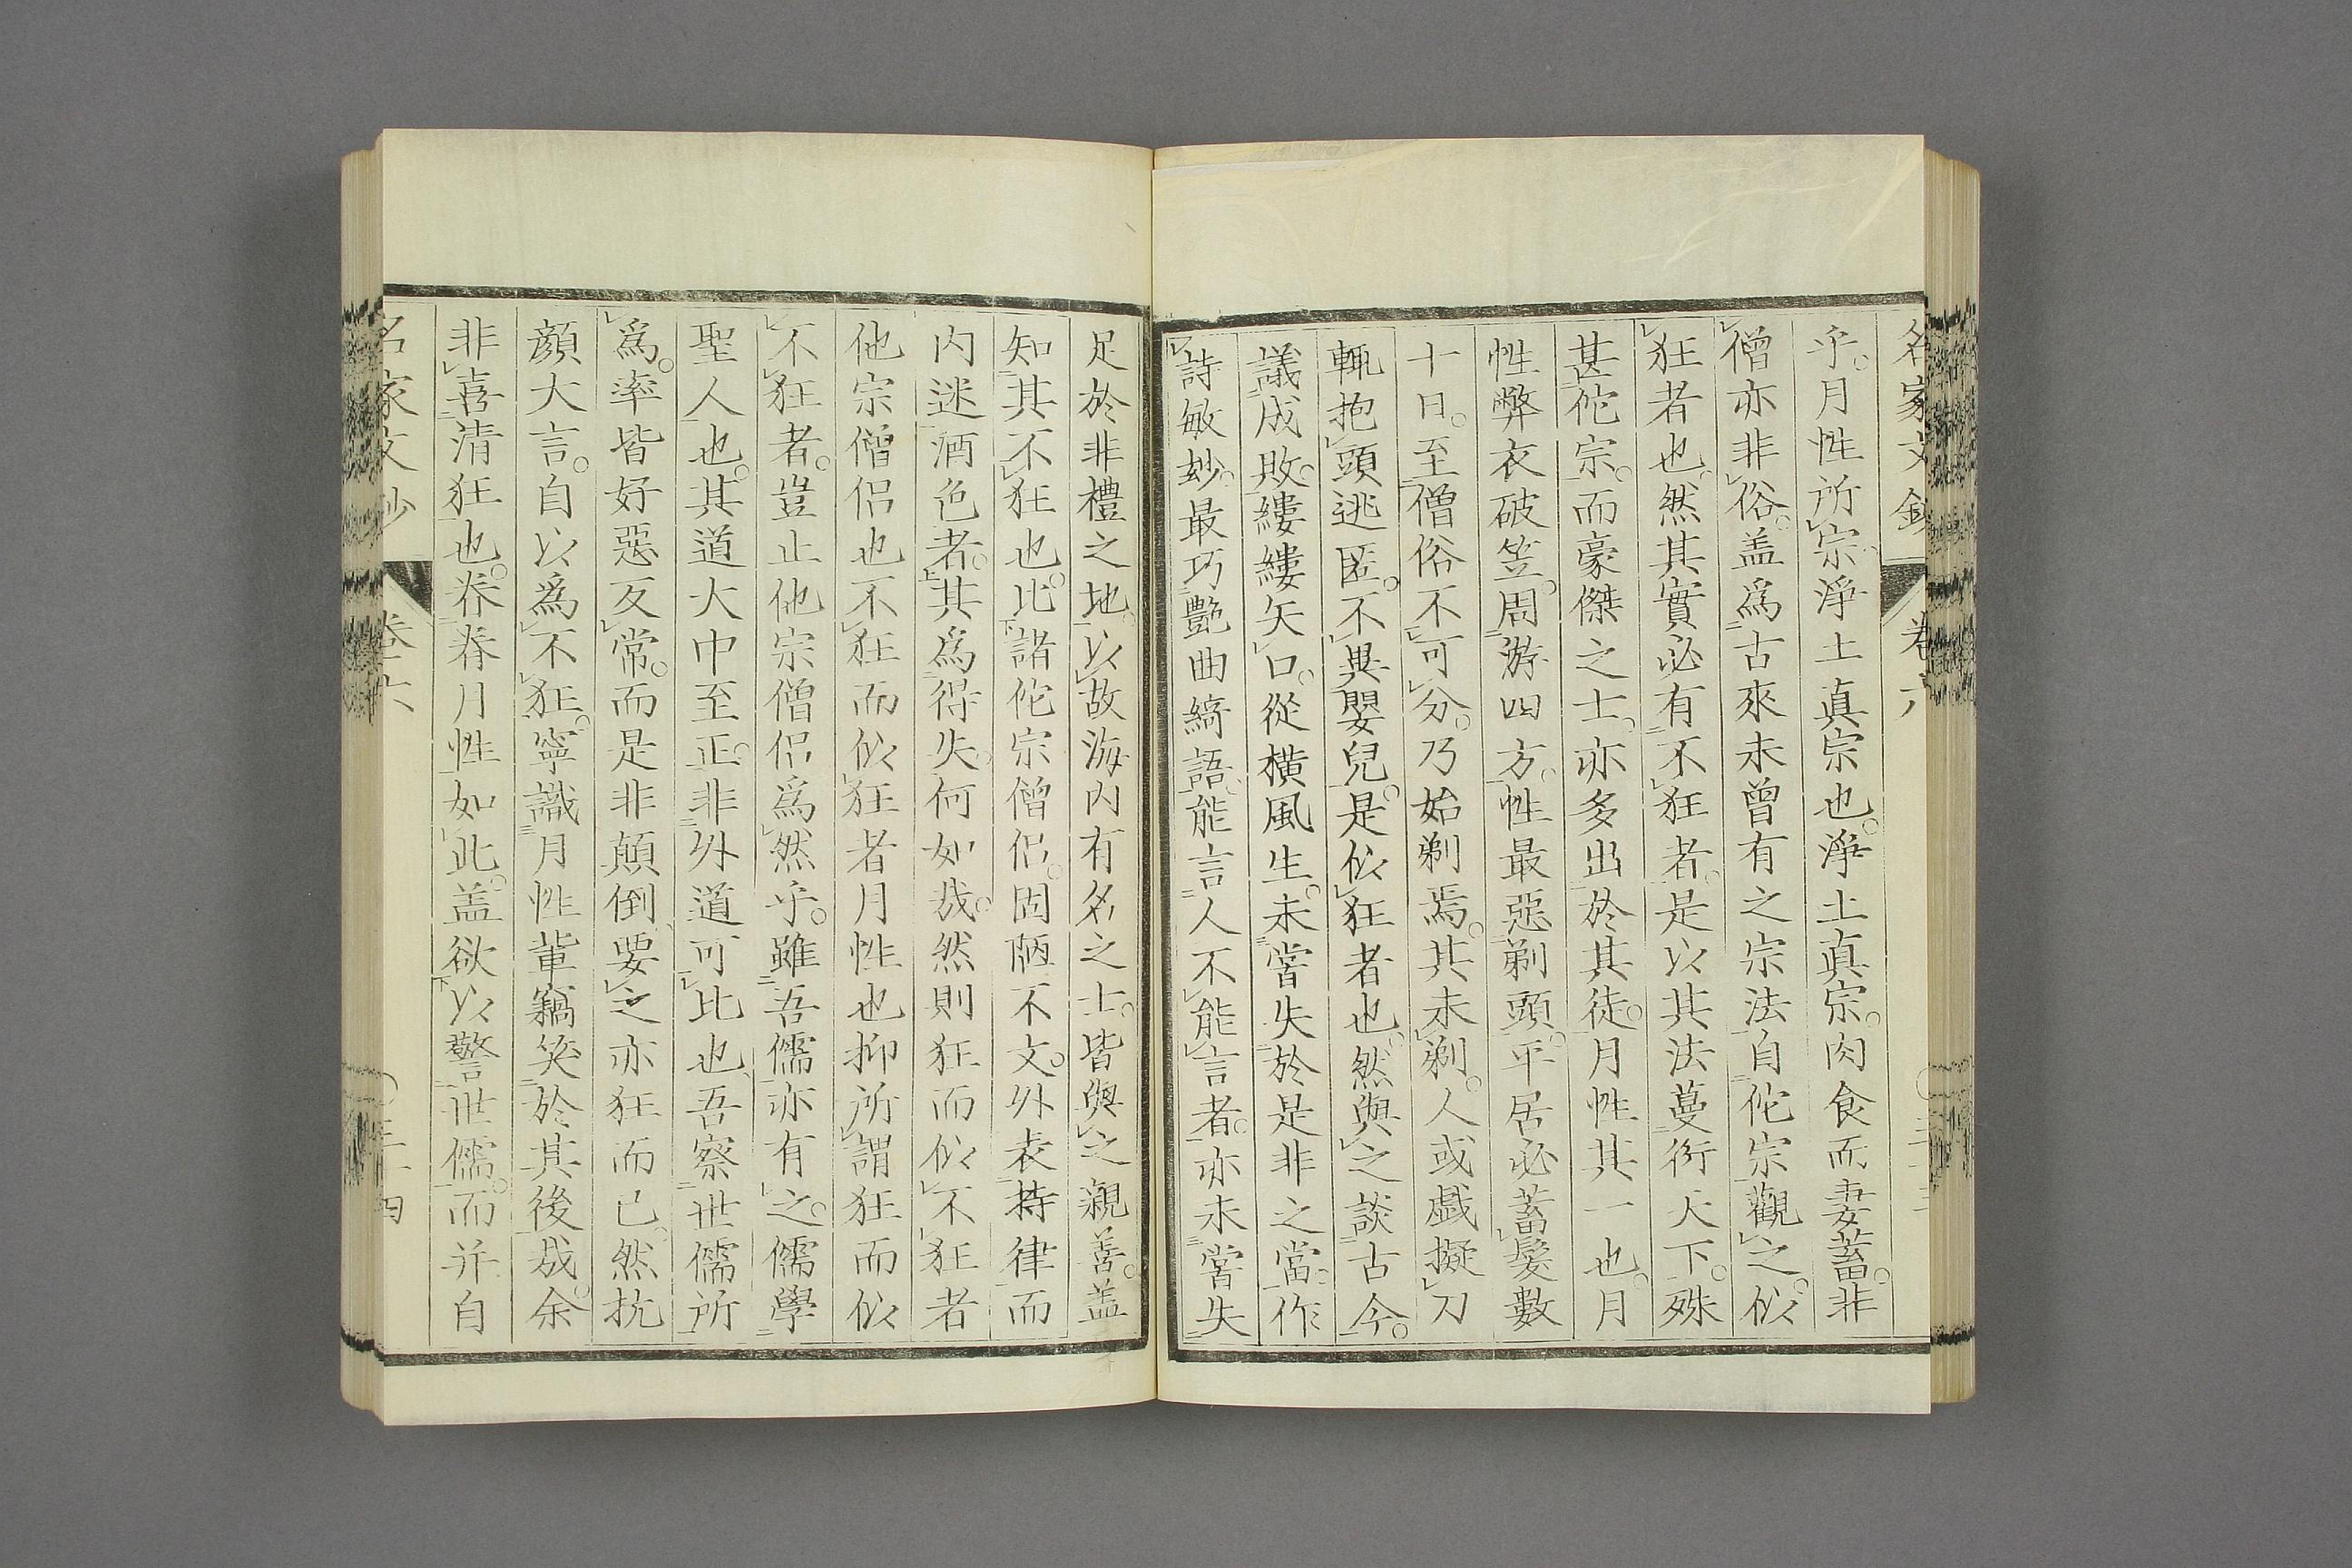 名家文鈔 卷六
乎。月性所宗淨土真宗也。淨土真宗。肉食而妻蓄。非
僧亦非俗。盖爲古來未曾有之宗法。自佗宗觀之。似
狂者也。然其實必有不狂者。是以其法蔓衍天下。殊
甚佗宗。而豪傑之士。亦多出於其徒。月性其一也。月
性弊衣破笠。周游四方。性最惡剃頭。平居必蓄髮數
十日。至僧俗不可分。乃始剃焉。其未剃。人或戯擬刀
輒抱頭逃匿。不異嬰兒。是似狂者也。然與之談古今。
議成敗。縷縷矢口。從橫風生。未嘗失於是非之當。作
詩敏妙。最巧艷曲綺語。能言人不能言者。亦未嘗失
足於非禮之地。以故海内有名之士。皆與之親善。盖
知其不狂也。比諸佗宗僧侶。固陋不文。外表持律而
内迷酒色者。其爲得失。何如哉。然則狂而似不狂者
他宗僧侶也不狂而似狂者月性也抑所謂狂而似
不狂者。豈止他宗僧侶爲然乎。雖吾儒亦有之。儒學
聖人也。其道大中至正。非外道可比也吾察世儒所
爲。率皆好惡反常。而是非顛倒。要之亦狂而已。然抗
顔大言。自以爲不狂。寧識月性輩竊笑於其後哉。余
非喜清狂也。眷眷月性如此。盖欲以警世儒。而并自
名家文鈔 卷六 三十四